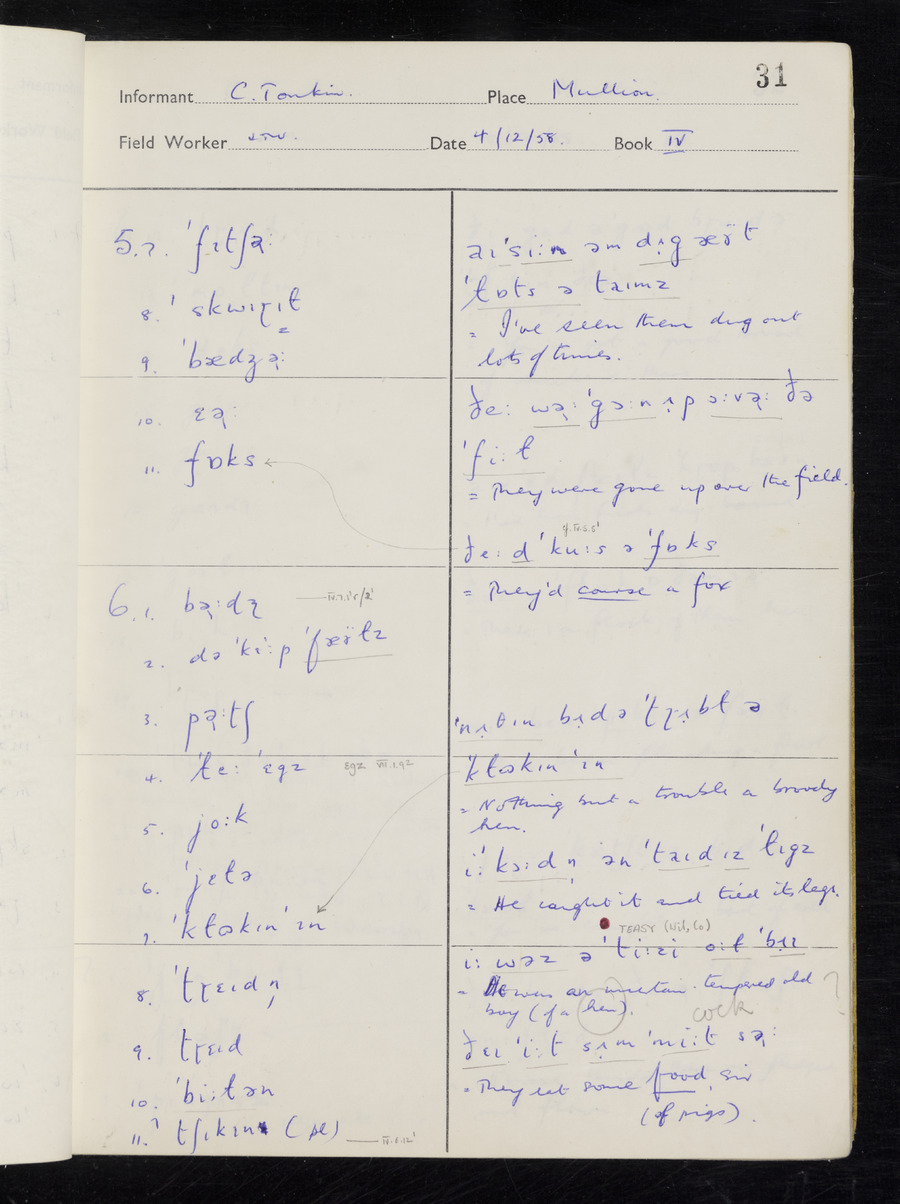 31
Informant C. Tonkin. Place Mullion.
Field Worker Date 4/12/58. Book IV
5.7. ˈfɪtʃə̣ː
8. ˈskwɪɽɪt
9. ˈbædʒə̣ː
10. ɛə̣ː
11. fɒks
6.1. bə̣ːdʐ
2. də ˈkiːp ˈfæɤ̈tz
3. pə̣ːtʃ
4. ˈteː ˈɛgz egz VII.1.92
5. joːk
6. ˈjɛtə
7. ˈktɒkɪn ˈɪn
8. ˈtɽɛɪdn̩
9. tɽɛɪd
10. ˈbiːtən
11. ˈtʃɪkɪn (pl)
aɪ ˈsiːn əm dɪg æɤ̈t
ˈtɒts ə taɪmz
= I've seen them dug out
lots of times.
ðeː wə̣ː ˈgɔːn ʌp ɔːvə̣ː ðə
ˈfiːt
= They were gone up over the field.
ðeː d ˈkuːs ə ˈfɒks
= They'd course a fox
ˈnʌθɪn bɪd ə ˈtɽʌbt ə
ˈktɒkɪn ˈɪn
= Nothing but a trouble a broody
hen.
iː kɔːd n̩ ən ˈtaɪd ɪz ˈtɪgz
= He caught it and tied its legs.
TEASY (Wil, Co)
iː wəz ə ˈtiːzi oːt ˈbɪɪ
= He was an uncertain-tempered old
boy (of a hen). cock ?
ðeɪ ˈiːt sʌm ˈmiːt sə̣ː
= They eat some food, sir
(of pigs).